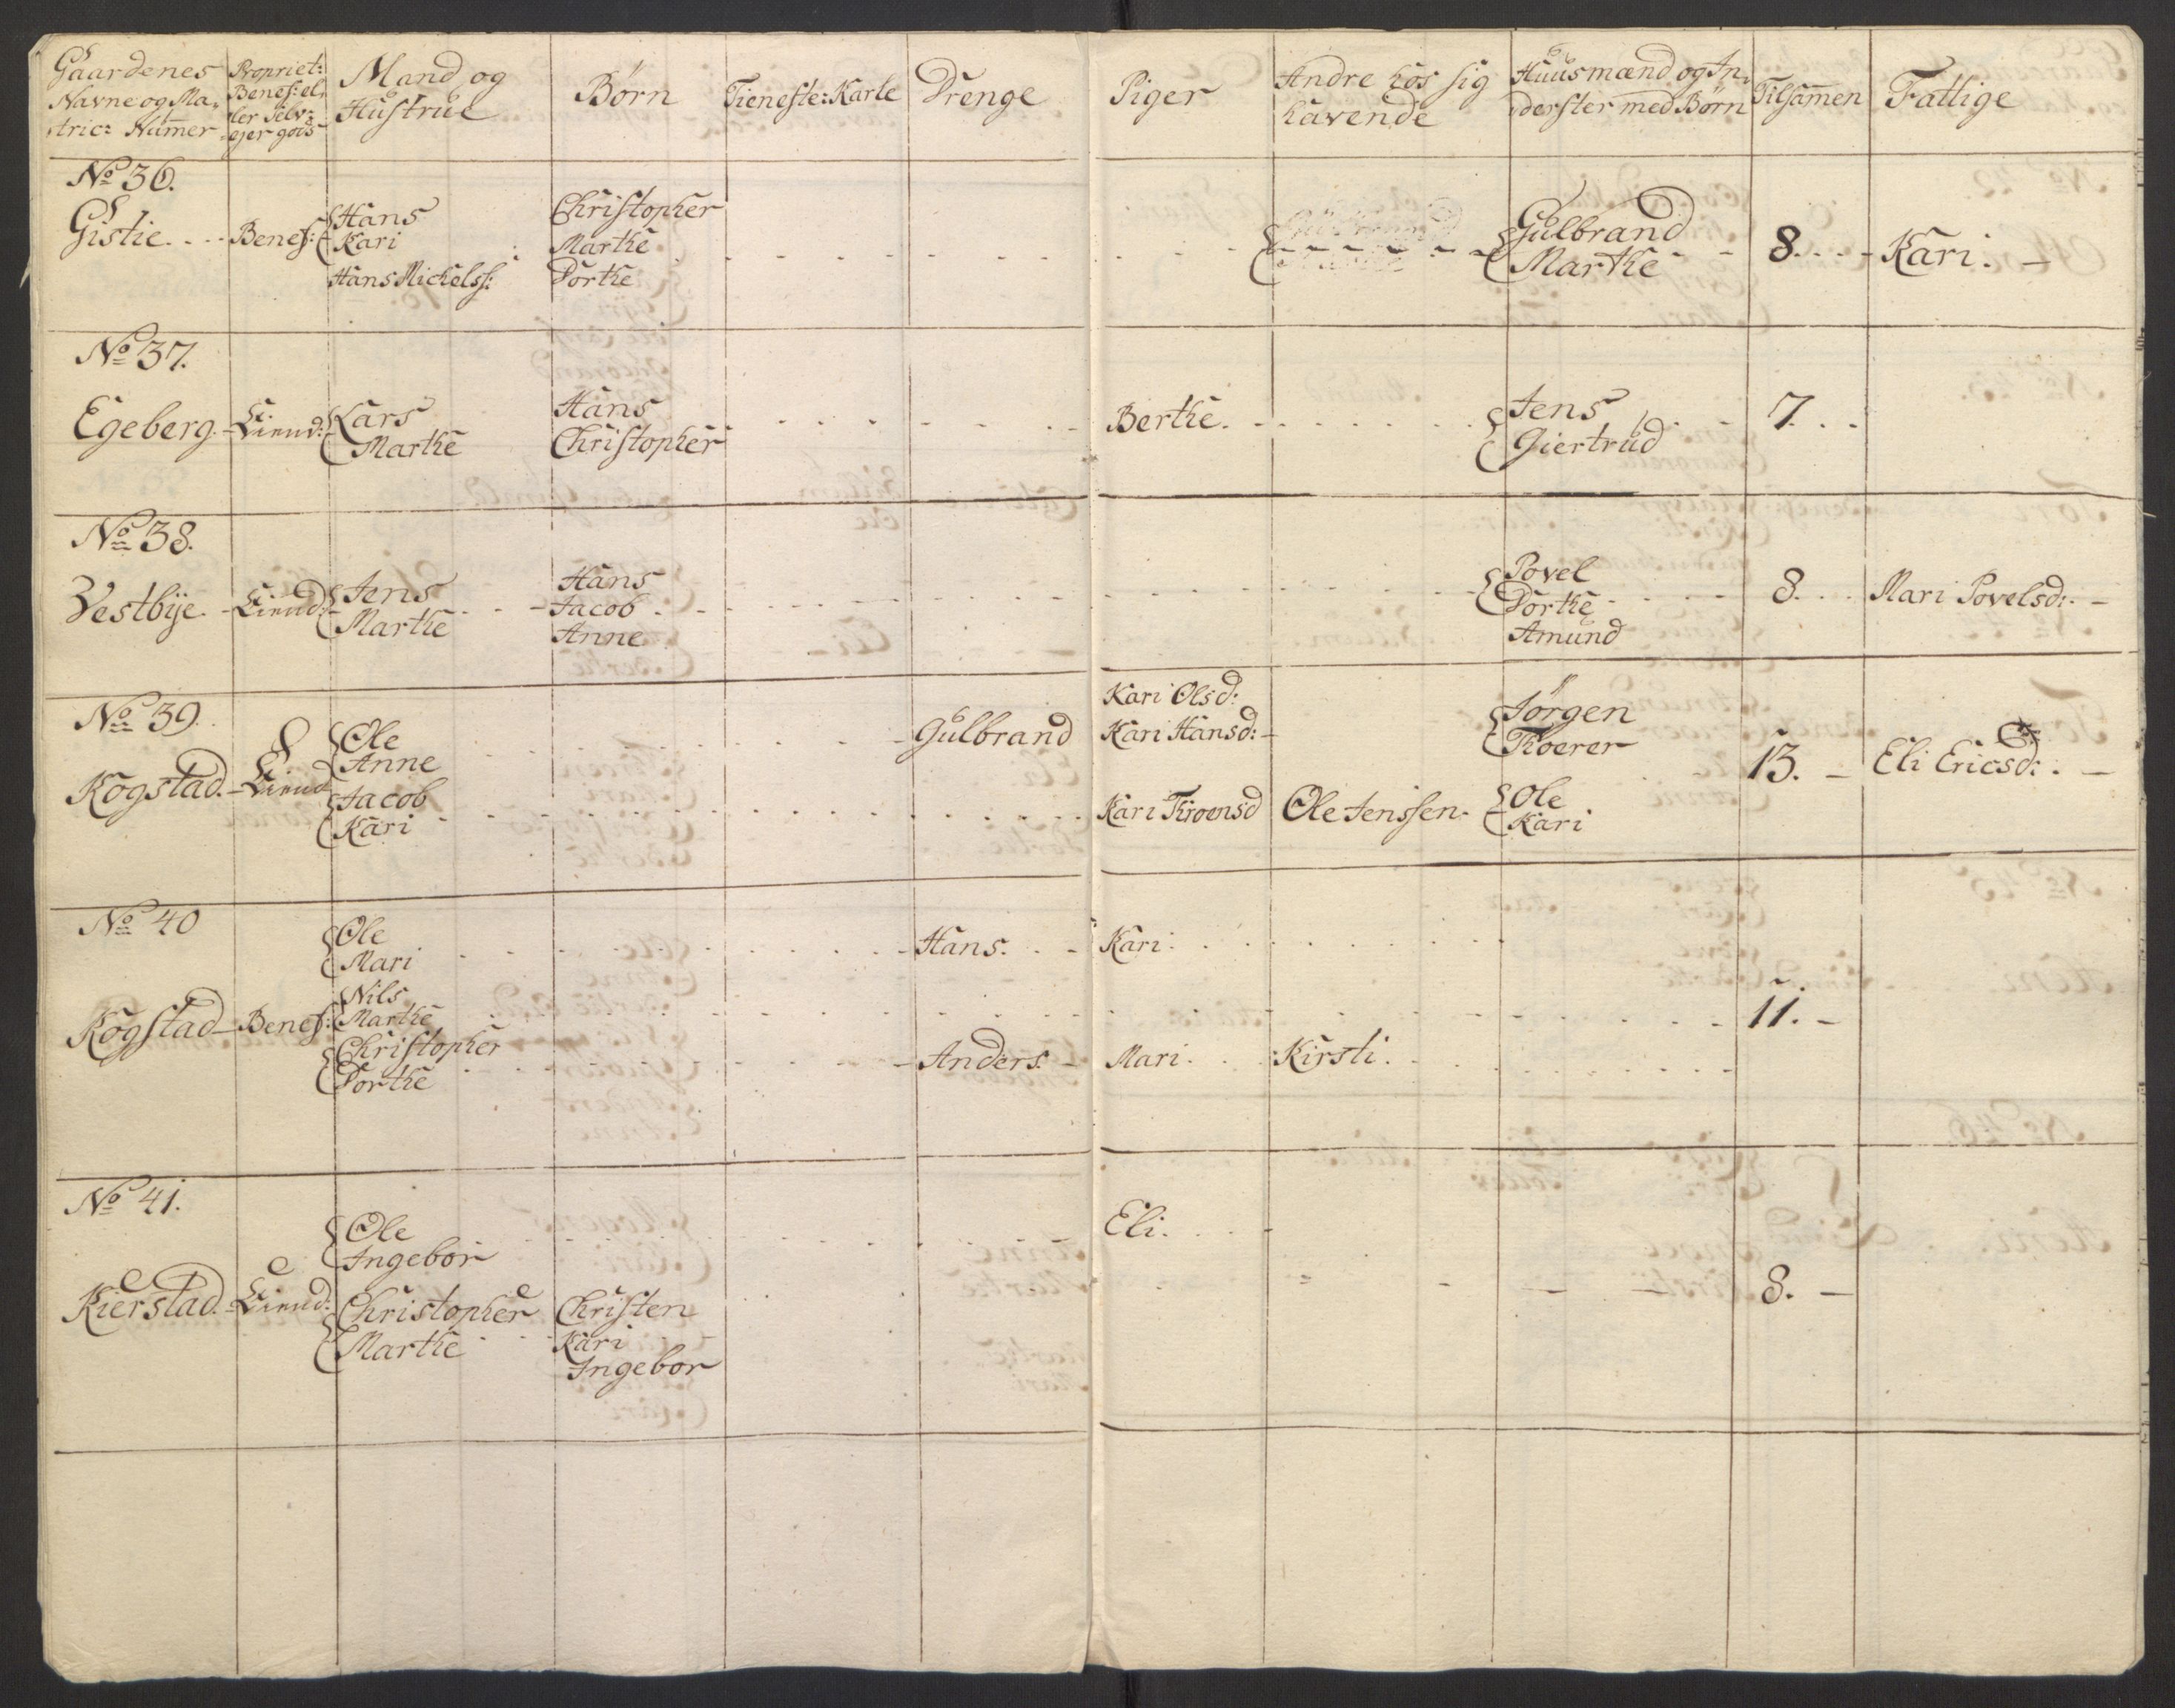 Gaardenes
Navne og Ma-
tric: Numer
Propriet:
Benef: el-
ler Selv-
ejer gods
Mand og
Hustrue
Børn
Tieneste: Karle
Drenge
Piger
Andre hos sig
havende
Huusmænd og In-
derster med Børn
Tilsamen
Fattige
No 36.
Gistie. Benef:
Hans
Kari
Hans Michelss:
Christopher
Marthe
Dorthe
Gulbrand
Marthe
8.
Kari.
No 37.
Egeberg. Eiend:
Lars
Marthe
Hans
Christopher
Berthe.
Jens
Giertrud
7.
No 38.
Vestbye. Eiend:
Jens
Marthe
Hans
Jacob
Anne
Povel
Dorthe
Amund
8.
Mari Povelsd:
No 39.
Kogstad. Eiend
Ole
Anne
Jacob
Kari
Gulbrand
Kari Olsd:
Kari Hansd:
Kari Thronsd
Ole Jenssen.
Jørgen
Ole
Kari
13.
Eli Ericsd:
No 40
Kogstad Benef:
Ole
Mari
Nils
Marthe
Christopher
Dorthe
Hans.
Anders.
Kari
Mari
Kirsti.
11.
No 41.
Kierstad. Eiend:
Ole
Ingebor
Christopher
Marthe
Christen
Kari
Ingebor
Eli.
8.